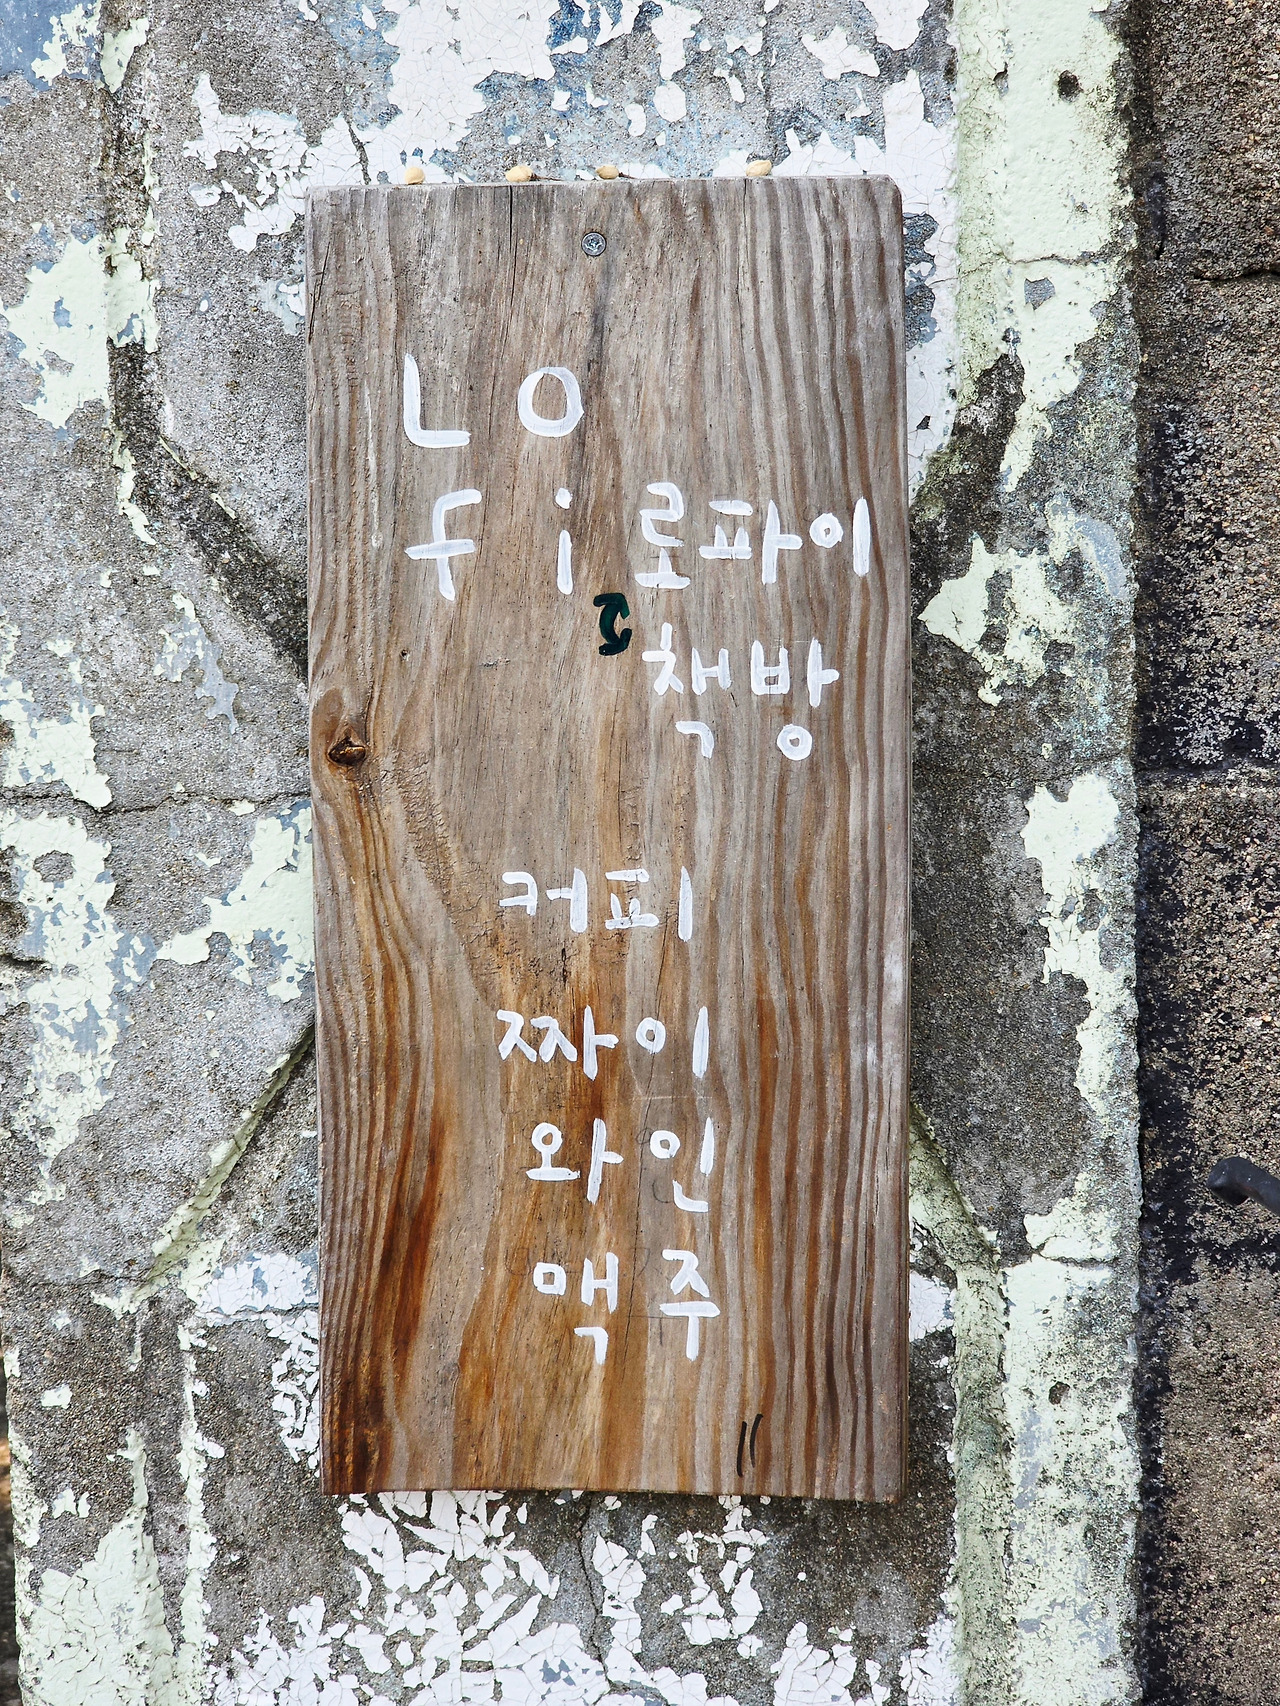 LO
Fi 로파이
책방
커피
짜이
와인
맥주